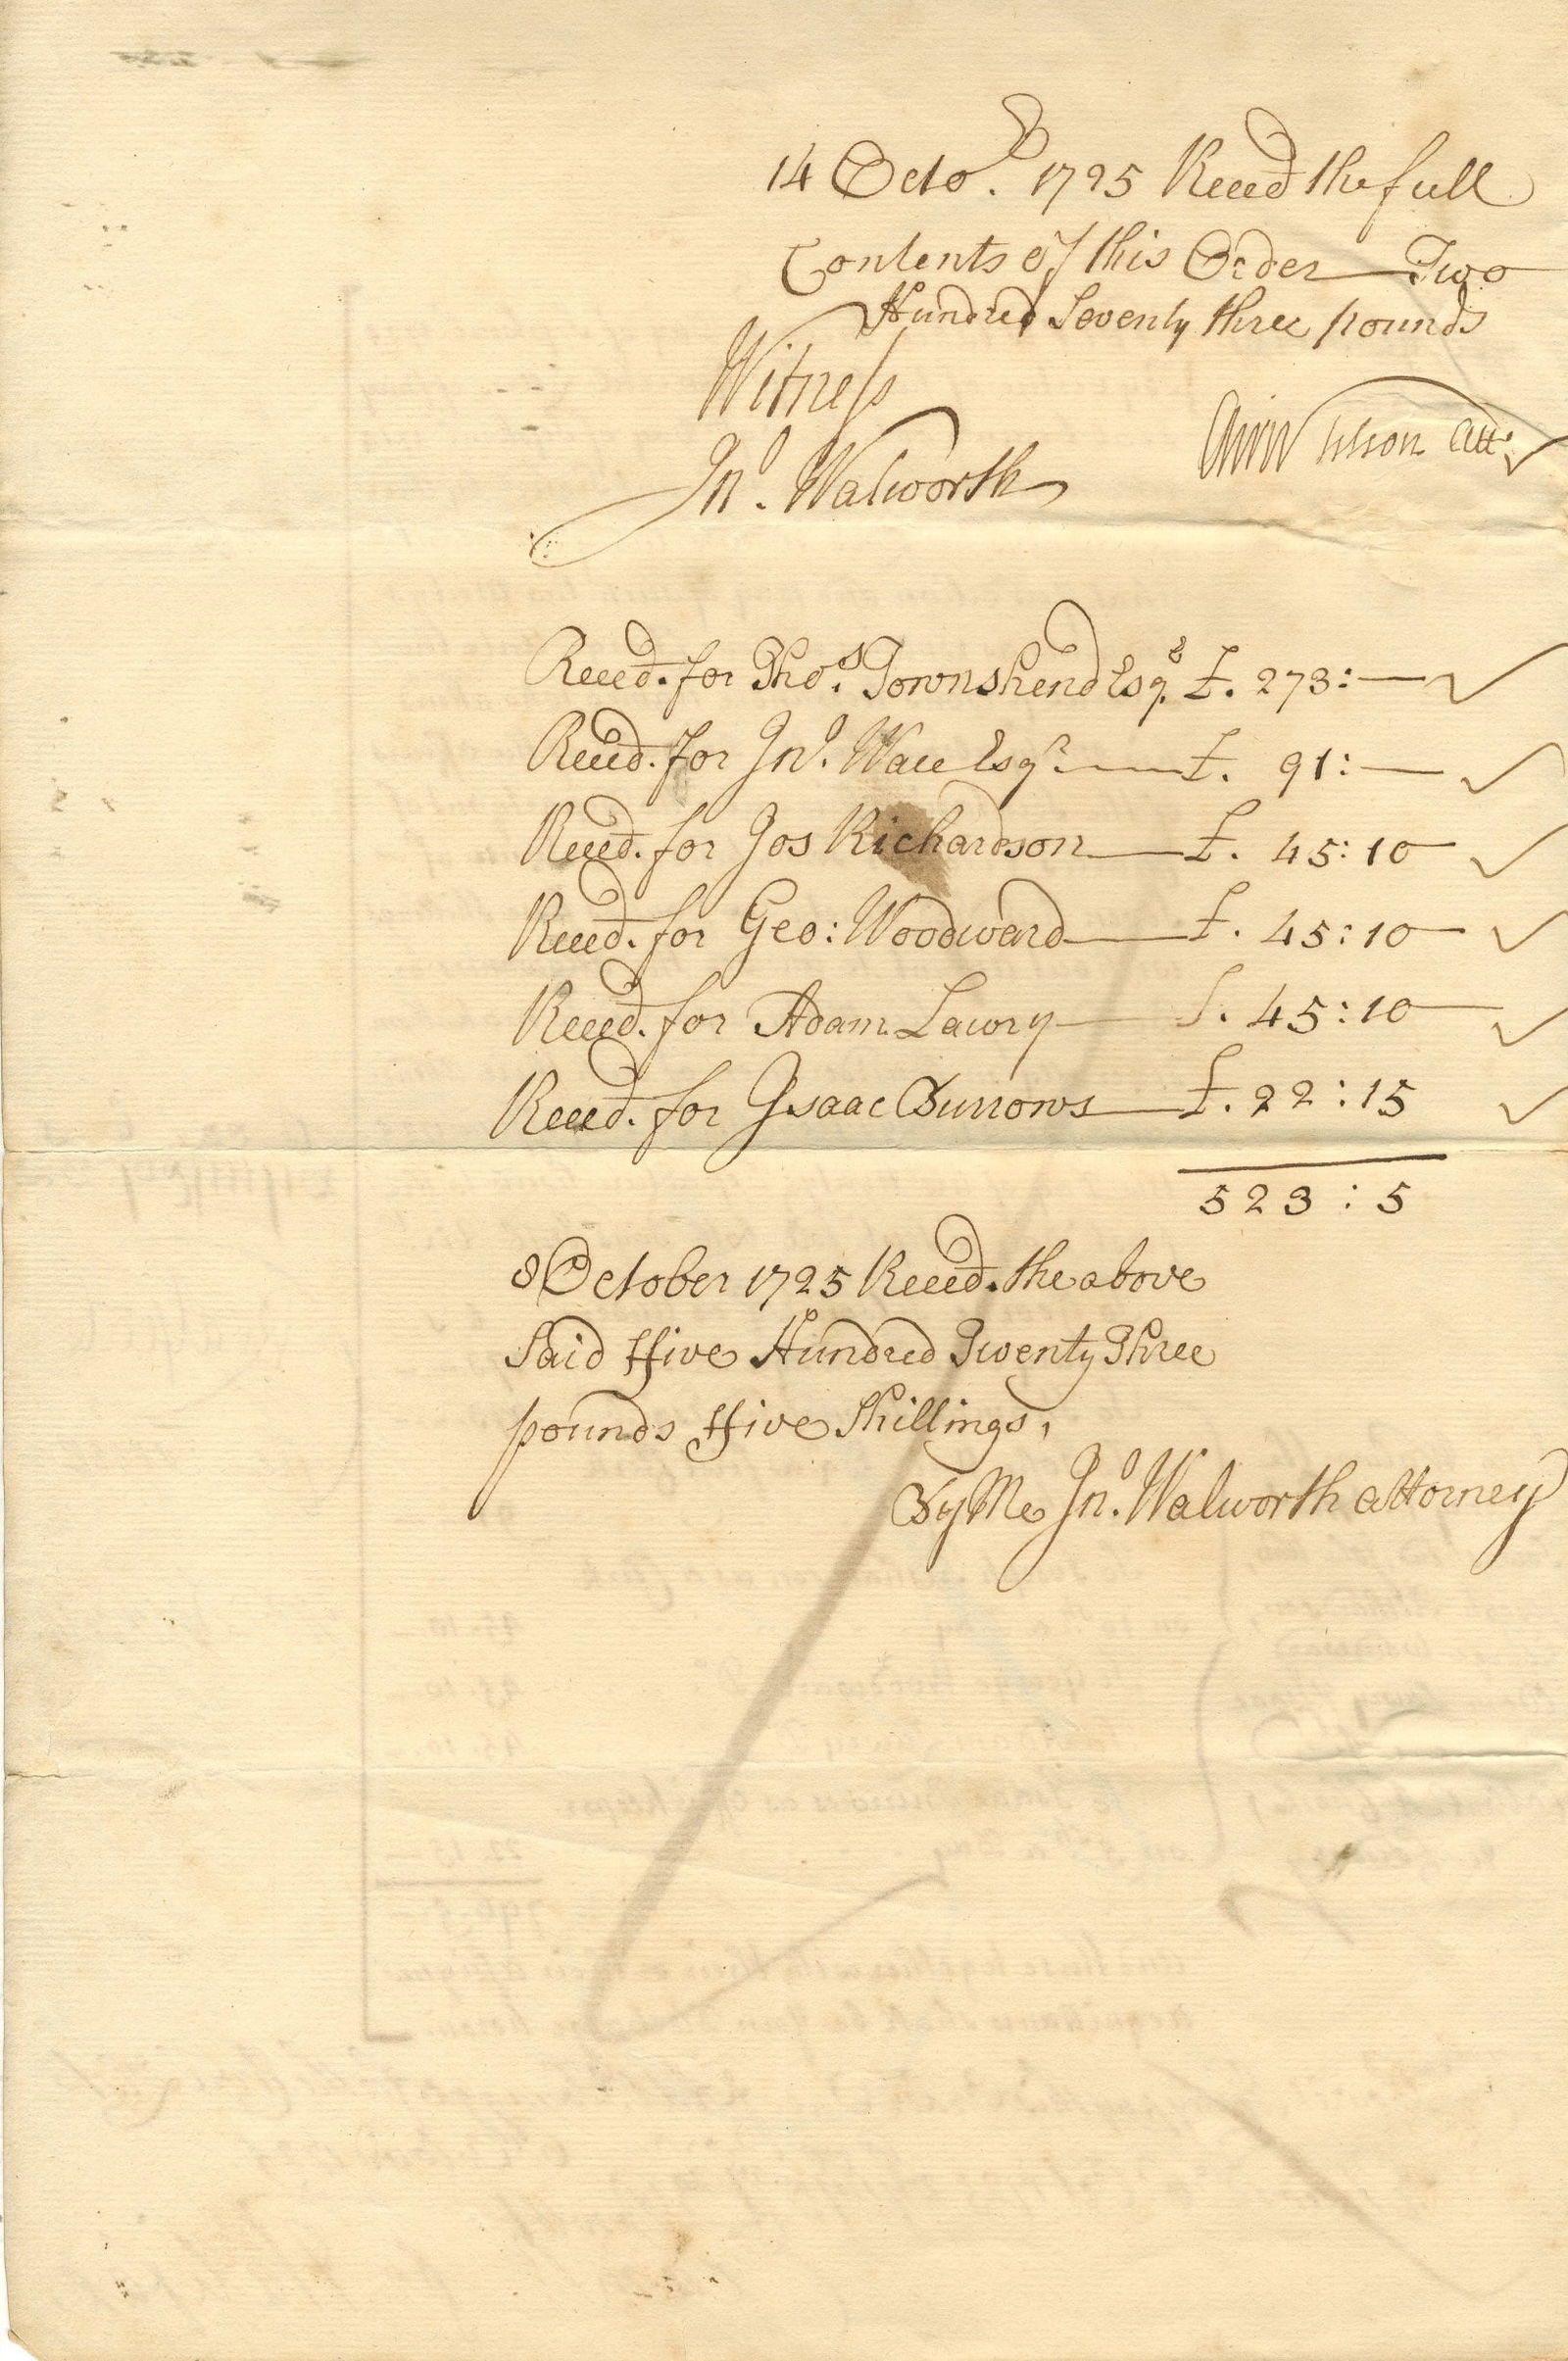 14 Octo.r 1725 Recd the full
Contents of this Order — Two
Hundred Seventy three pounds
Witness
Jno. Walworth
Tilson Att.
Recd. for Thos. Townshend Esqr. £. 273:—
Recd. for Jno. Wace Esqr. — £. 91:—
Recd. for Jos Richardson — £. 45:10
Recd. for Geo: Woodward — £. 45:10
Recd. for Adam Lawry — £. 45:10
Recd. for Isaac Burrows — £. 22:15
523:5
8 October 1725 Recd. the above
Said ffive Hundred Twenty Three
pounds ffive Shillings,
By Me Jno. Walworth attorney